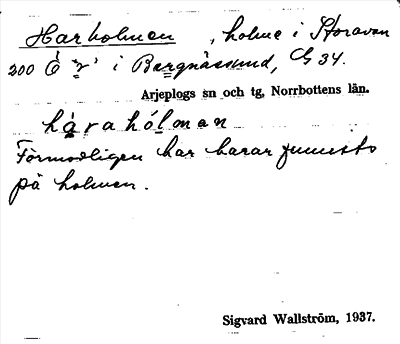 Harholmen, holme i Storavan
200 Ö "r" i Bergnässund, G 34.
Arjeplogs sn och tg, Norrbottens län.
hàrahólman
Förmodligen har harar funnits
på holmen.
Sigvard Wallström, 1937.